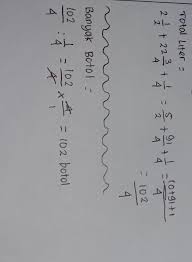 Total liter =
2 1/2 + 22 3/4 + 1/4 = 5/2 + 91/4 + 1/4 = (10+91+1)/4
= 102/4
Banyak Botol =
102/4 : 1/4 = 102/4 × 4/1 = 102 botol